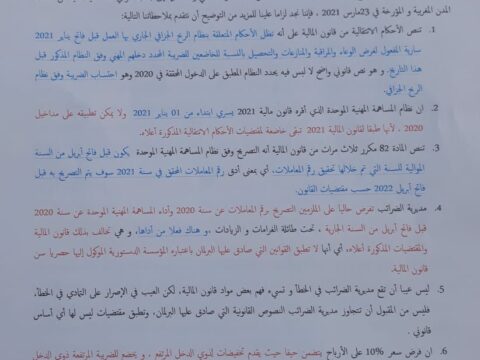 المدن المغربية و المؤرخة في 23مارس 2021 ، فإننا نجد لزاما علينا للمزيد من التوضيح أن نتقدم بملاحظاتنا التالية:
1. تنص الأحكام الانتقالية من قانون المالية على أنه تظل الأحكام المتعلقة بنظام الربح الجزافي الجاري بها العمل قبل فاتح يناير 2021
سارية المفعول لغرض الوعاء والمراقبة والمنازعات والتحصيل بالنسبة للخاضعين للضريبة المحدد دخلهم المهني وفق النظام المذكور قبل
هذا التاريخ. و هو نص قانوني واضح لا لبس فيه يحدد النظام المطبق على الدخول المحققة في 2020 وهو احتساب الضريبة وفق نظام
الربح الجزافي.
2. ان نظام المساهمة المهنية الموحدة الذي أقره قانون مالية 2021 يسري ابتداء من 01 يناير 2021 ولا يمكن تطبيقه على مداخيل
2020 ، لأنها طبقا لقانون المالية 2021 تبقى خاضعة لمقتضيات الأحكام الانتقالية المذكورة أعلاه.
3. تنص المادة 82 مكرر ثلاث مرات من قانون المالية أنه التصريح وفق نظام المساهمة المهنية الموحدة يكون قبل فاتح أبريل من السنة
الموالية للسنة التي تم خلالها تحقيق رقم المعاملات، أي بمعنى أدق رقم المعاملات المحقق في 2021 سوف يتم التصريح به قبل
فاتح أبريل 2022 حسب مقتضيات القانون.
4. مديرية الضرائب تفرض حاليا على الملزمين التصريح برقم المعاملات عن سنة 2020 وأداء المساهمة المهنية الموحدة عن سنة 2020
قبل فاتح أبريل من السنة الجارية ، تحت طائلة الغرامات و الزيادات ، و هناك فعلا من أداها، و هي تخالف بذلك قانون المالية
والمقتضيات المذكورة أعلاه، أي أنها لا تطبق القوانين التي صادق عليها البرلمان باعتباره المؤسسة الدستورية الموكول إليها حصريا سن
قانون المالية.
5. ليس عيبا أن تقع مديرية الضرائب في الخطأ و تسيء فهم بعض مواد قانون المالية، لكن العيب في الإصرار على التمادي في الخطأ،
فليس من المقبول أن تتجاوز مديرية الضرائب النصوص القانونية التي صادق عليها البرلمان، وتطبق مقتضيات ليس لها أي أساس
قانوني .
6. ان فرض سعر 10% على الأرباح يتضمن حيفا حيث يقدم تخفيضات لذوي الدخل المرتفع ، و يخضع للضريبة المرتفعة ذوي الدخل